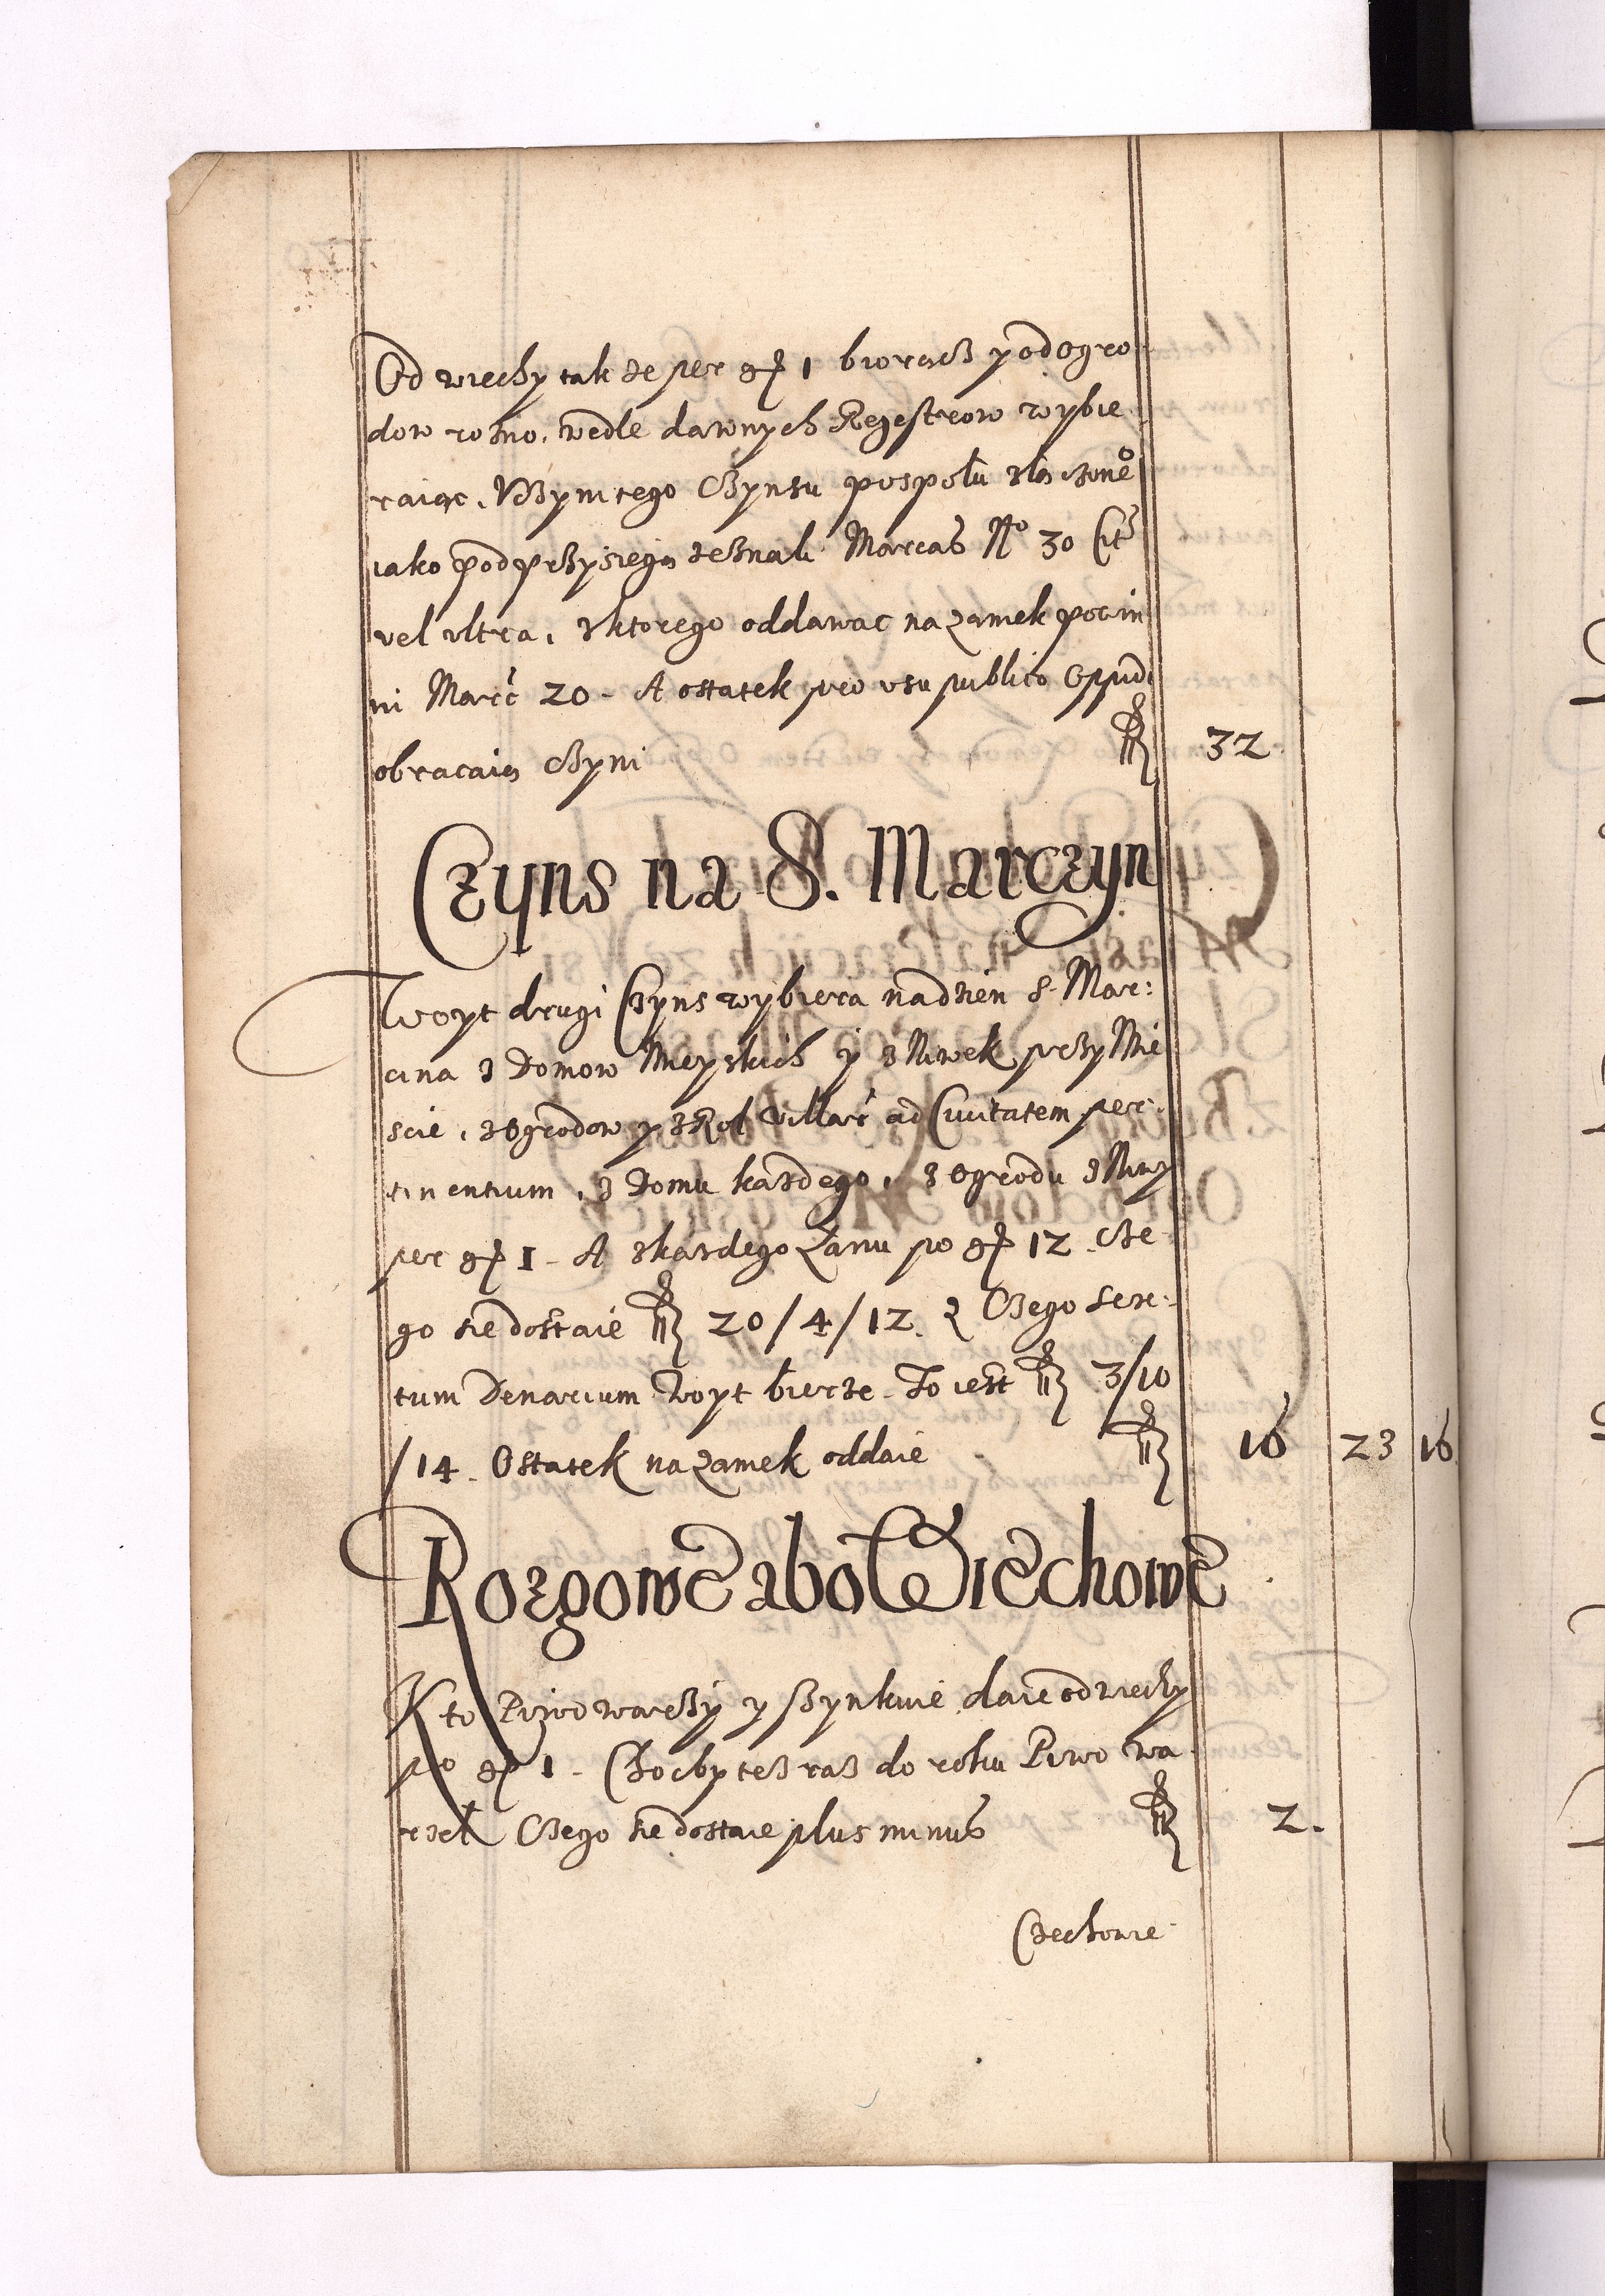 Od wiechy tak ze per gr 1 biorącz y od ogro
dow rozno, wedle dawnych Regestrow wybie
raiąc. Vczyni tego Czynsu pospołu złączone°
iako pod przysięgą zeznali Marcas N° 30 Cit
vel vltra, z ktorego oddawac na zamek powin
ni Marc 20 - A ostatek pro vsu publico Oppidi
obracaią czyni fl 32
Czyns na S. Marczyn
Woyt drugi Czyns wybiera na dzien S. Mar:
cina z Domow Mieyskich y z Niwek przy Mie
scie, z ogrodow y z Rol Villar ad Civitatem per:
tinentium, z Domu kazdego, z ogrodu z Niwy
per gr 1 - A z kazdego Łanu po gr 12. Cze
go sie dostaie fl 20/4/12. Z Czego Sex:
tum Denarium Woyt bierze - To iest fl 3/10
/14. Ostatek na zamek oddaie fl 16 23 16
Rozgowe abo Wiechowe
Kto Piwo warzy y szynkuie daie od wiechy
po gr 1 - Choc by tez raz do roku Piwo wa
rzeł Czego sie dostaie plus minus fl 2.
Czechowe